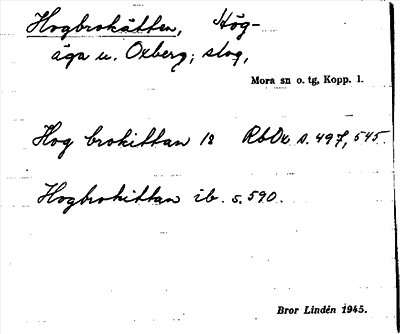 Hogbrokätten, Hög-
äga u. Oxberg; skog,
Mora sn o. tg, Kopp. l.
Hog brokittan 18 RbDx s. 497, 545.
Hogbrokittan ib. s. 590.
Bror Lindén 1945.